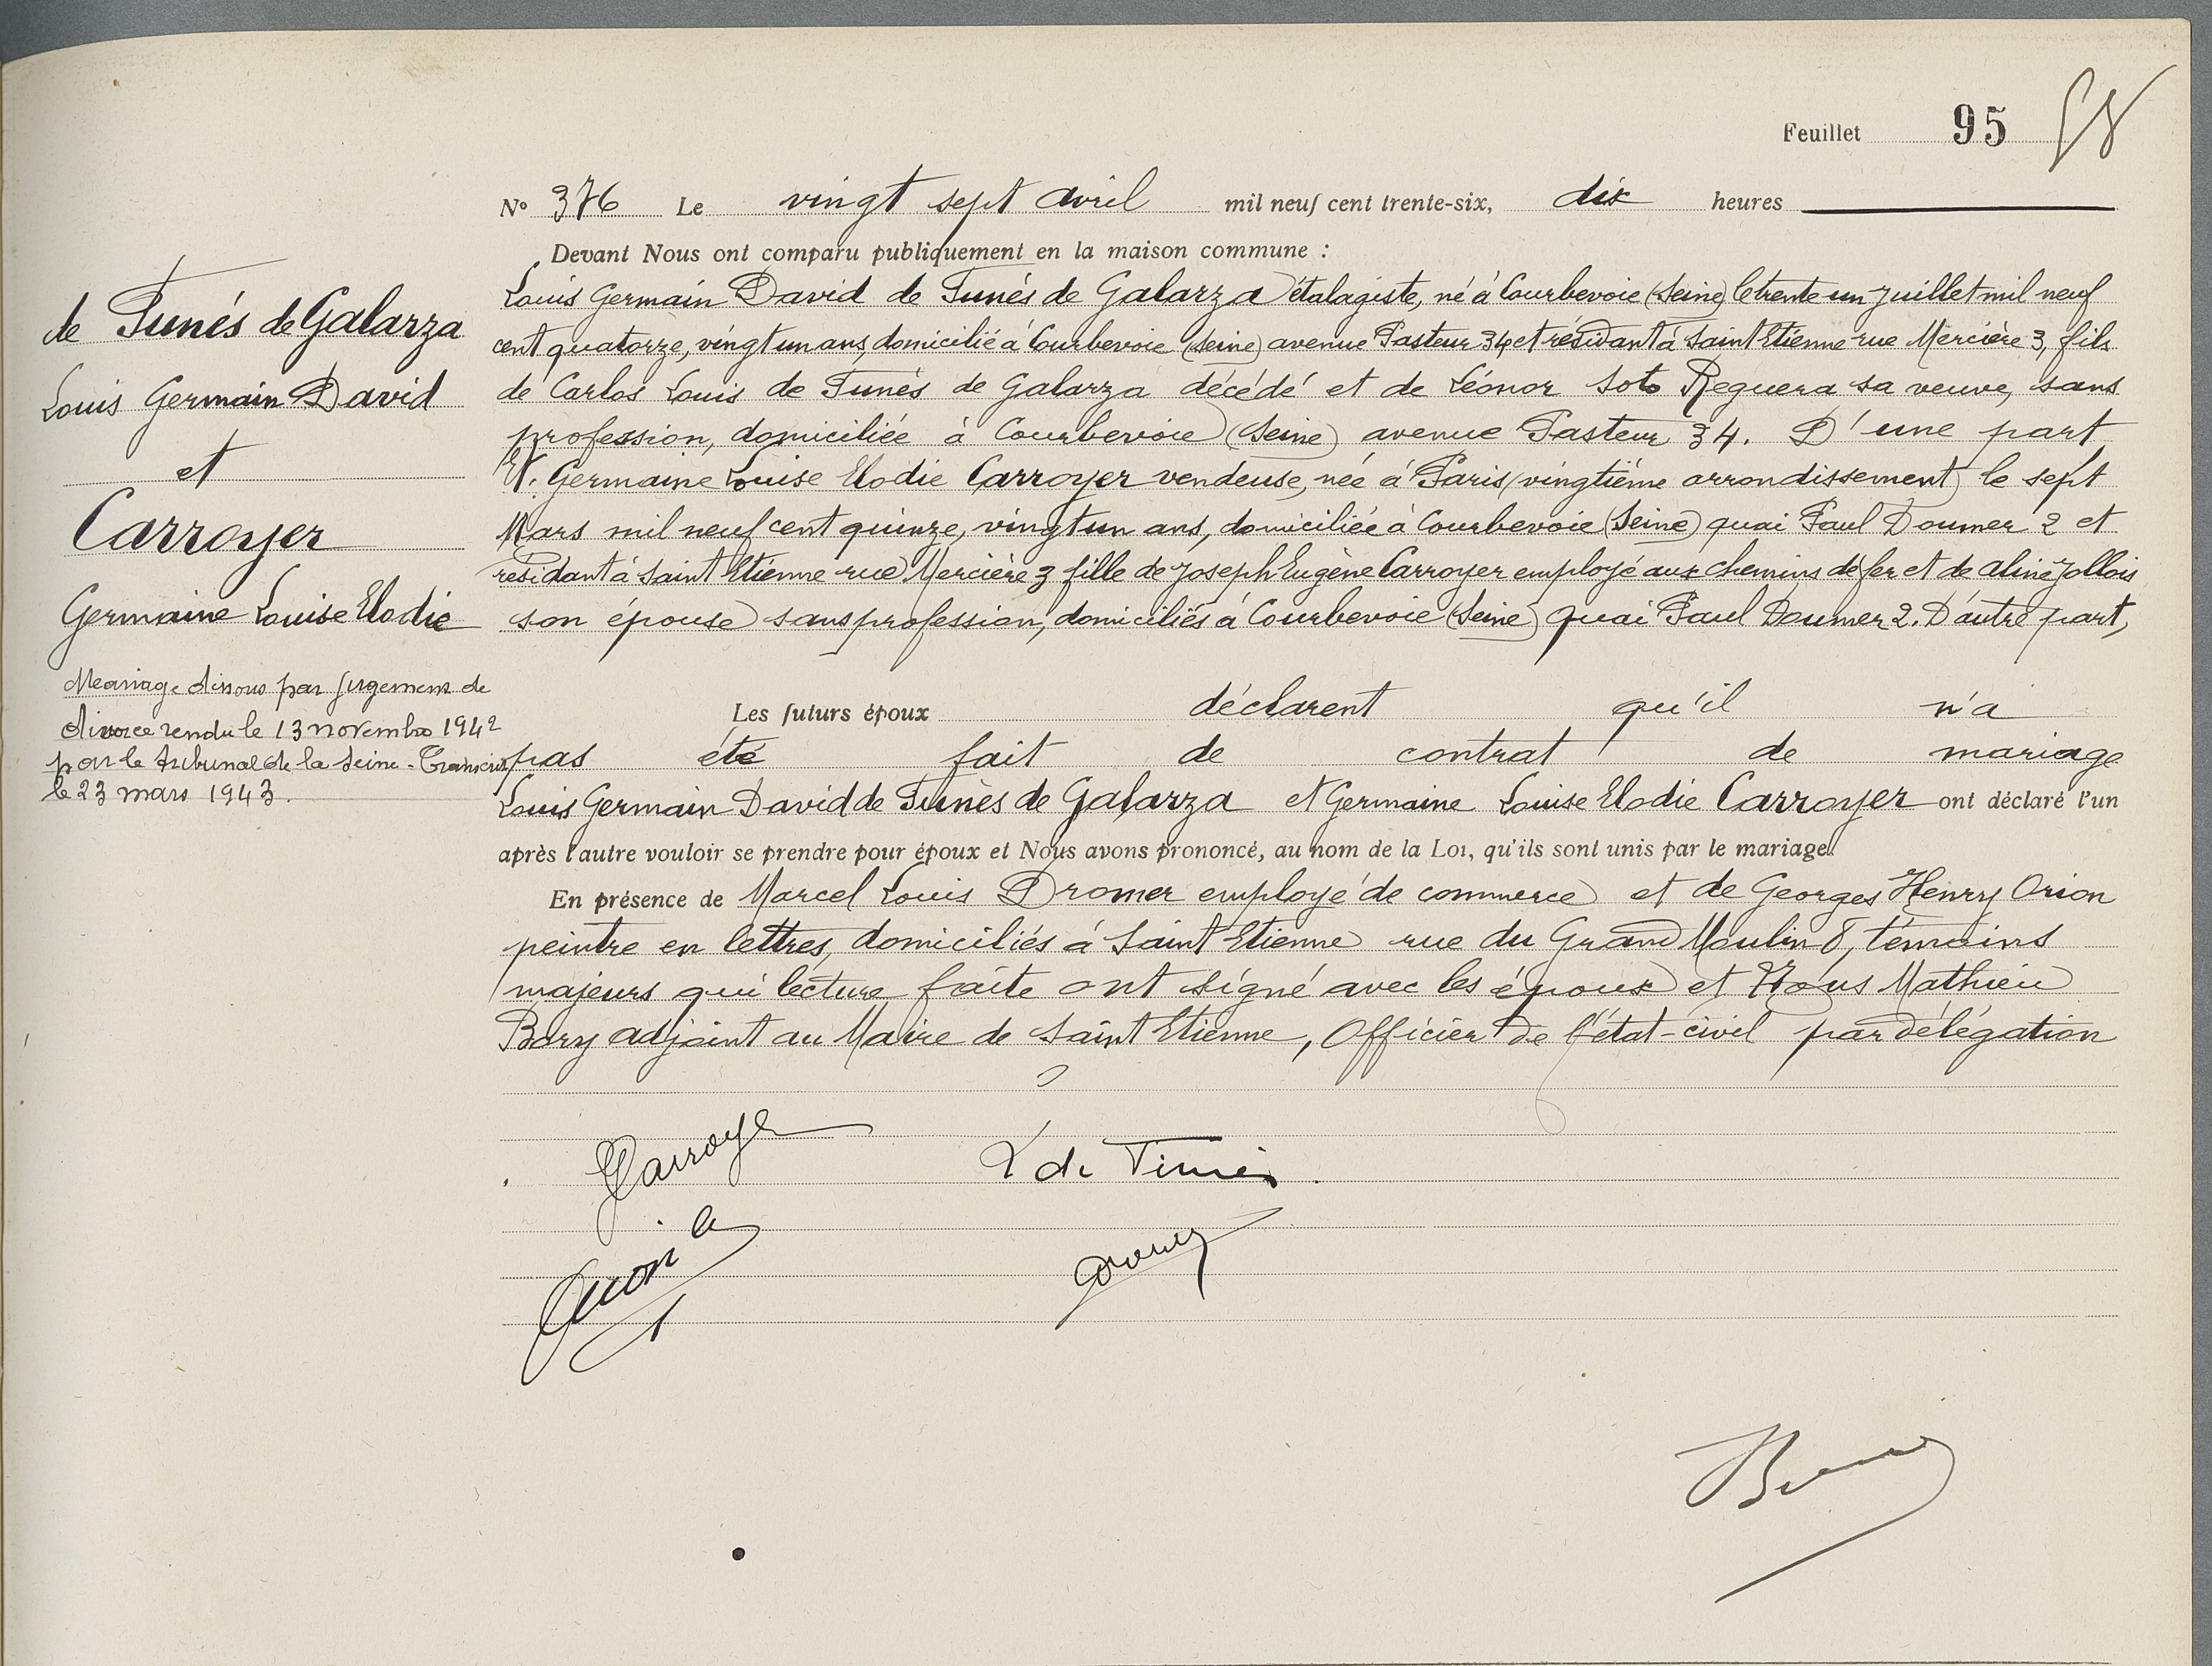 Feuillet 95
N° 376 Le vingt sept avril mil neuf cent trente-six, dix heures
Devant Nous ont comparu publiquement en la maison commune :
de Funés de Galarza
Louis Germain David
et
Carroyer
Germaine Louise Elodie
Mariage dissous par jugement de
divorce rendu le 13 novembre 1942
par le tribunal de la Seine - Transcrit
le 23 mars 1943.
Louis Germain David de Funès de Galarza étalagiste, né à Courbevoie (Seine) le trente un juillet mil neuf
cent quatorze, vingt un ans, domicilié à Courbevoie (Seine) avenue Pasteur 34 et résidant à Saint Etienne rue Mercière 3, fils
de Carlos Louis de Funès de Galarza décédé et de Léonor Soto Reguera sa veuve, sans
profession, domiciliée à Courbevoie (Seine) avenue Pasteur 34. D'une part
Et. Germaine Louise Elodie Carroyer vendeuse, née à Paris (vingtième arrondissement) le sept
Mars mil neuf cent quinze, vingt un ans, domiciliée à Courbevoie (Seine) quai Paul Doumer 2 et
résidant à Saint Etienne rue Mercière 3 fille de Joseph Eugène Carroyer employé aux chemins de fer et de Aline Jollois
son épouse sans profession, domiciliés à Courbevoie (Seine) quai Paul Doumer 2. D'autre part,
Les futurs époux déclarent qu'il n'a
pas été fait de contrat de mariage
Louis Germain David de Funès de Galarza et Germaine Louise Elodie Carroyer ont déclaré l'un
après l'autre vouloir se prendre pour époux et Nous avons prononcé, au nom de la Loi, qu'ils sont unis par le mariage.
En présence de Marcel Louis Dromer employé de commerce et de Georges Henry Orion
peintre en lettres, domiciliés à Saint Etienne rue du Grand Moulin 8, témoins
majeurs qui lecture faite ont signé avec les époux et Nous Mathieu
Bory adjoint au Maire de Saint Etienne, Officier de l'état-civil par délégation
Carroyer
L de Funès
Orion